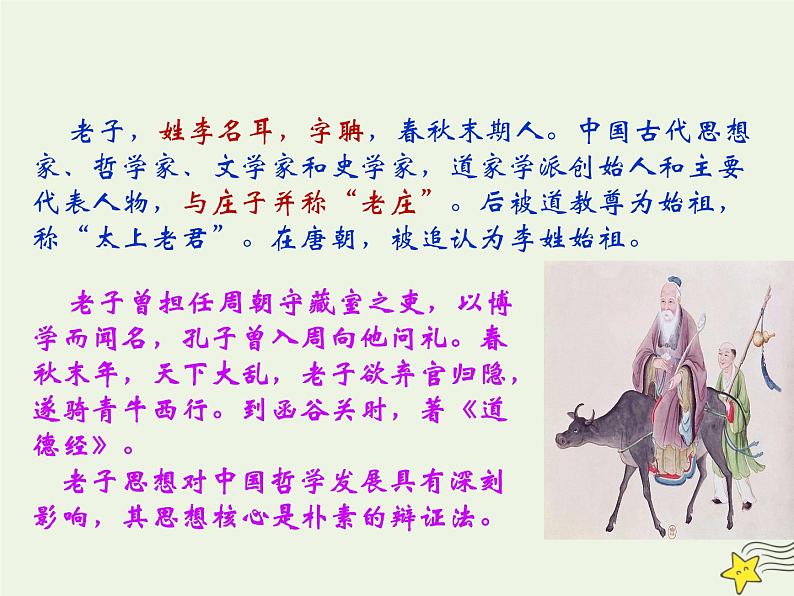 老子，姓李名耳，字聃，春秋末期人。中国古代思想
家、哲学家、文学家和史学家，道家学派创始人和主要
代表人物，与庄子并称“老庄”。后被道教尊为始祖，
称“太上老君”。在唐朝，被追认为李姓始祖。
老子曾担任周朝守藏室之吏，以博
学而闻名，孔子曾入周向他问礼。春
秋末年，天下大乱，老子欲弃官归隐，
遂骑青牛西行。到函谷关时，著《道
德经》。
老子思想对中国哲学发展具有深刻
影响，其思想核心是朴素的辩证法。